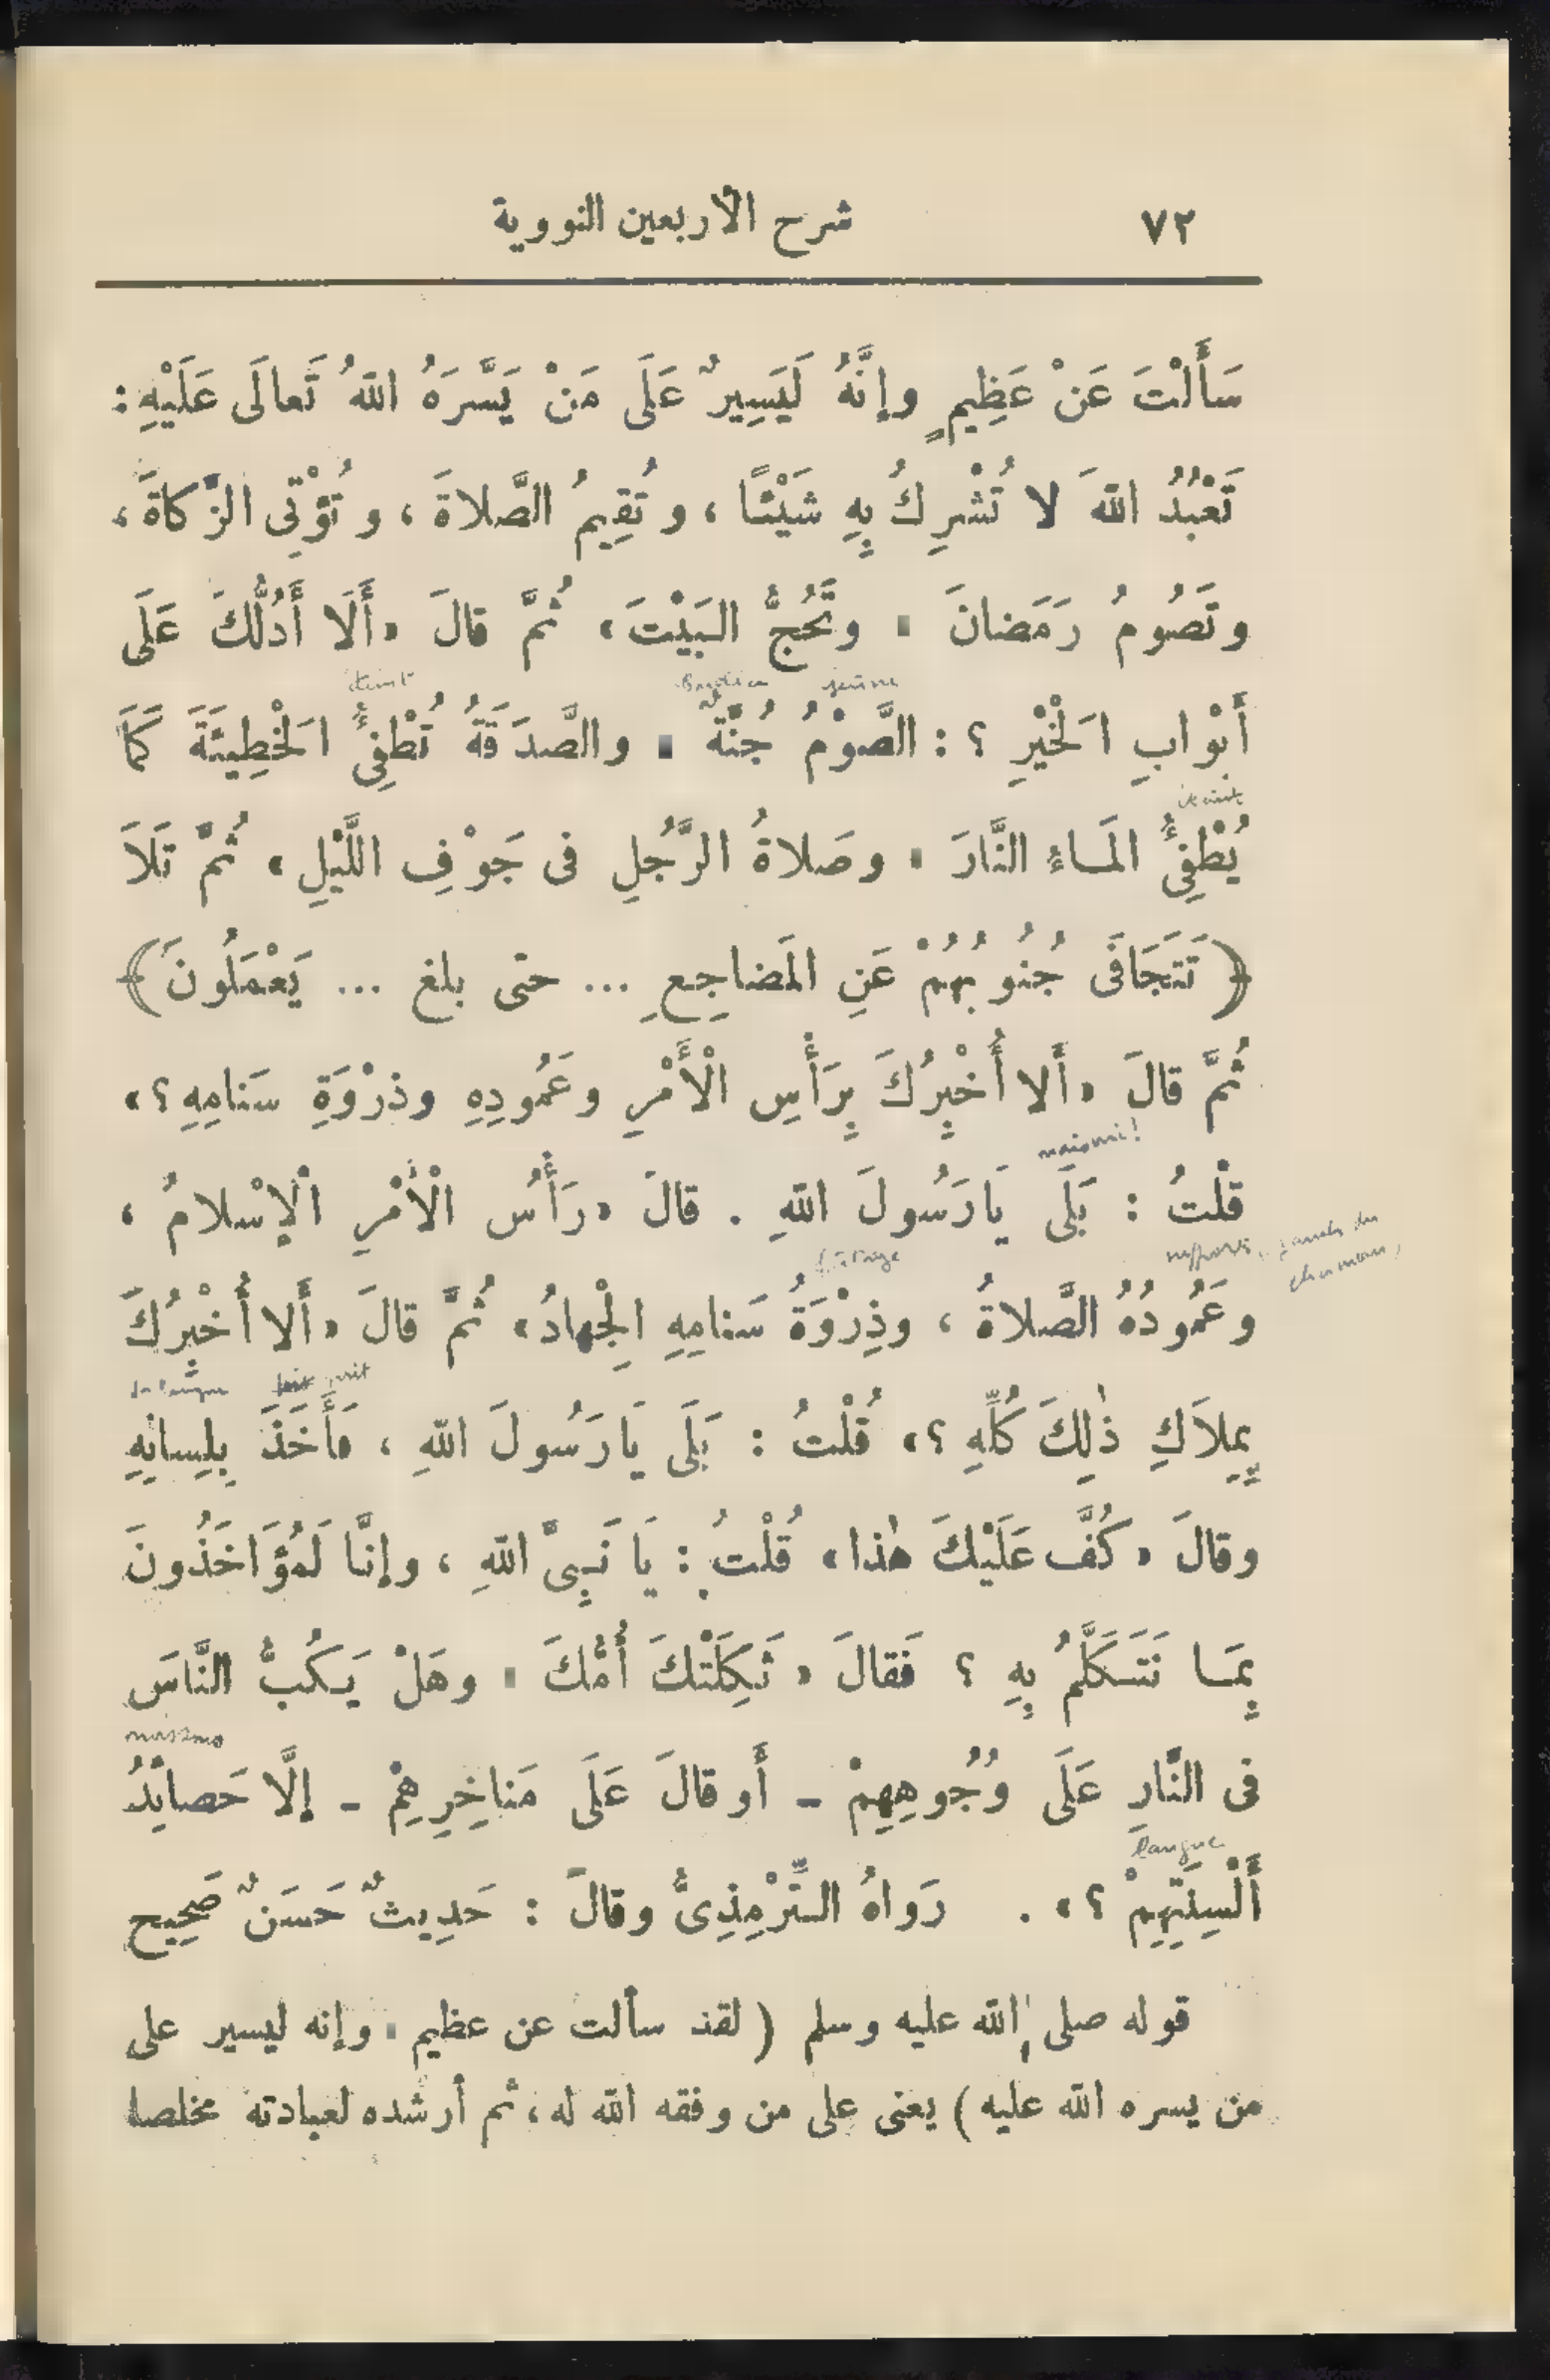 ٧٢ شرح الأربعين النووية
سَأَلْتَ عَنْ عَظِيمٍ وإنَّهُ لَيَسِيرٌ عَلَى مَنْ يَسَّرَهُ اللهُ تَعالَى عَلَيْهِ:
تَعْبُدُ اللهَ لا تُشْرِكُ بِهِ شَيْئًا ، وتُقِيمُ الصَّلاةَ ، وتُؤْتِى الزَّكاةَ ،
وتَصُومُ رَمَضانَ ، وتَحُجُّ البَيْتَ» ثُمَّ قالَ «أَلَا أَدُلُّكَ عَلَى
éteint jeûne
أَبْوابِ الْخَيْرِ ؟ : الصَّوْمُ جُنَّةٌ ، والصَّدَقَةُ تُطْفِئُ الْخَطِيئَةَ كَمَا
éteint
يُطْفِئُ المَاءُ النَّارَ ، وصَلاةُ الرَّجُلِ فى جَوْفِ اللَّيْلِ» ثُمَّ تَلَا
﴿تَتَجَافَى جُنُوبُهُمْ عَنِ المَضاجِعِ ... حتى بلغ ... يَعْمَلُونَ﴾
ثُمَّ قالَ «أَلا أُخْبِرُكَ بِرَأْسِ الْأَمْرِ وعَمُودِهِ وذرْوَةِ سَنامِهِ ؟»
mais oui!
قُلْتُ : بَلَى يَارَسُولَ اللهِ . قالَ «رَأْسُ الْأَمْرِ الْإسْلامُ ،
وعَمُودُهُ الصَّلاةُ ، وذِرْوَةُ سَنامِهِ الْجِهادُ» ثُمَّ قالَ «أَلا أُخْبِرُكَ
la langue prit
بِمِلَاكِ ذٰلِكَ كُلِّهِ ؟» قُلْتُ : بَلَى يَارَسُولَ اللهِ ، فَأَخَذَ بِلِسانِهِ
وقالَ «كُفَّ عَلَيْكَ هٰذا» قُلْتُ : يَا نَبِىَّ اللهِ ، وإنَّا لَمُؤَاخَذُونَ
بِمَا نَتَكَلَّمُ بِهِ ؟ فَقالَ «ثَكِلَتْكَ أُمُّكَ ، وهَلْ يَكُبُّ النَّاسَ
فى النَّارِ عَلَى وُجُوهِهِمْ - أَو قالَ عَلَى مَناخِرِهِمْ - إلَّا حَصائِدُ
langue
أَلْسِنَتِهِمْ ؟» . رَواهُ التِّرْمِذِىُّ وقالَ : حَدِيثٌ حَسَنٌ صَحِيح
قوله صلى الله عليه وسلم (لقد سألت عن عظيم ، وإنه ليسير على
من يسره الله عليه) يعنى على من وفقه الله له، ثم أرشده لعبادته مخلصا